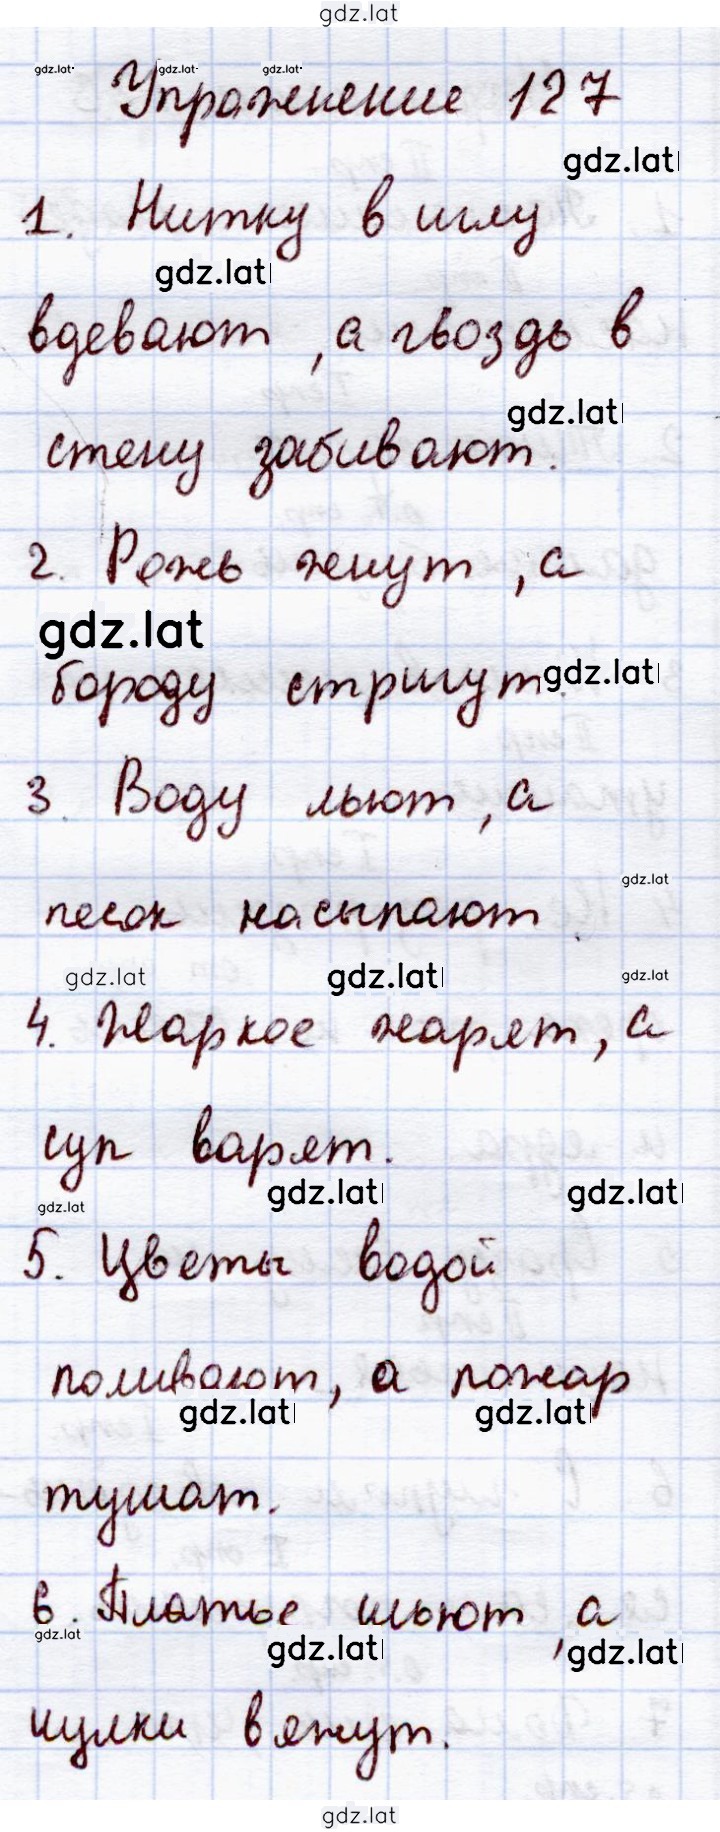 gdz.lat
gdz.lat gdz.lat gdz.lat
Упражнение 127
gdz.lat
1. Нитку в иглу
gdz.lat
вдевают, а гвоздь в
gdz.lat
стену забивают.
2. Рожь жнут, а
gdz.lat
бороду стригут.
gdz.lat
3. Воду льют, а
gdz.lat
песок насыпают.
gdz.lat gdz.lat gdz.lat
4. Жаркое жарят, а
суп варят.
gdz.lat gdz.lat
gdz.lat
5. Цветы водой
поливают, а пожар
gdz.lat gdz.lat
тушат.
6. Платье шьют, а
gdz.lat gdz.lat gdz.lat
чулки вяжут.
gdz.lat